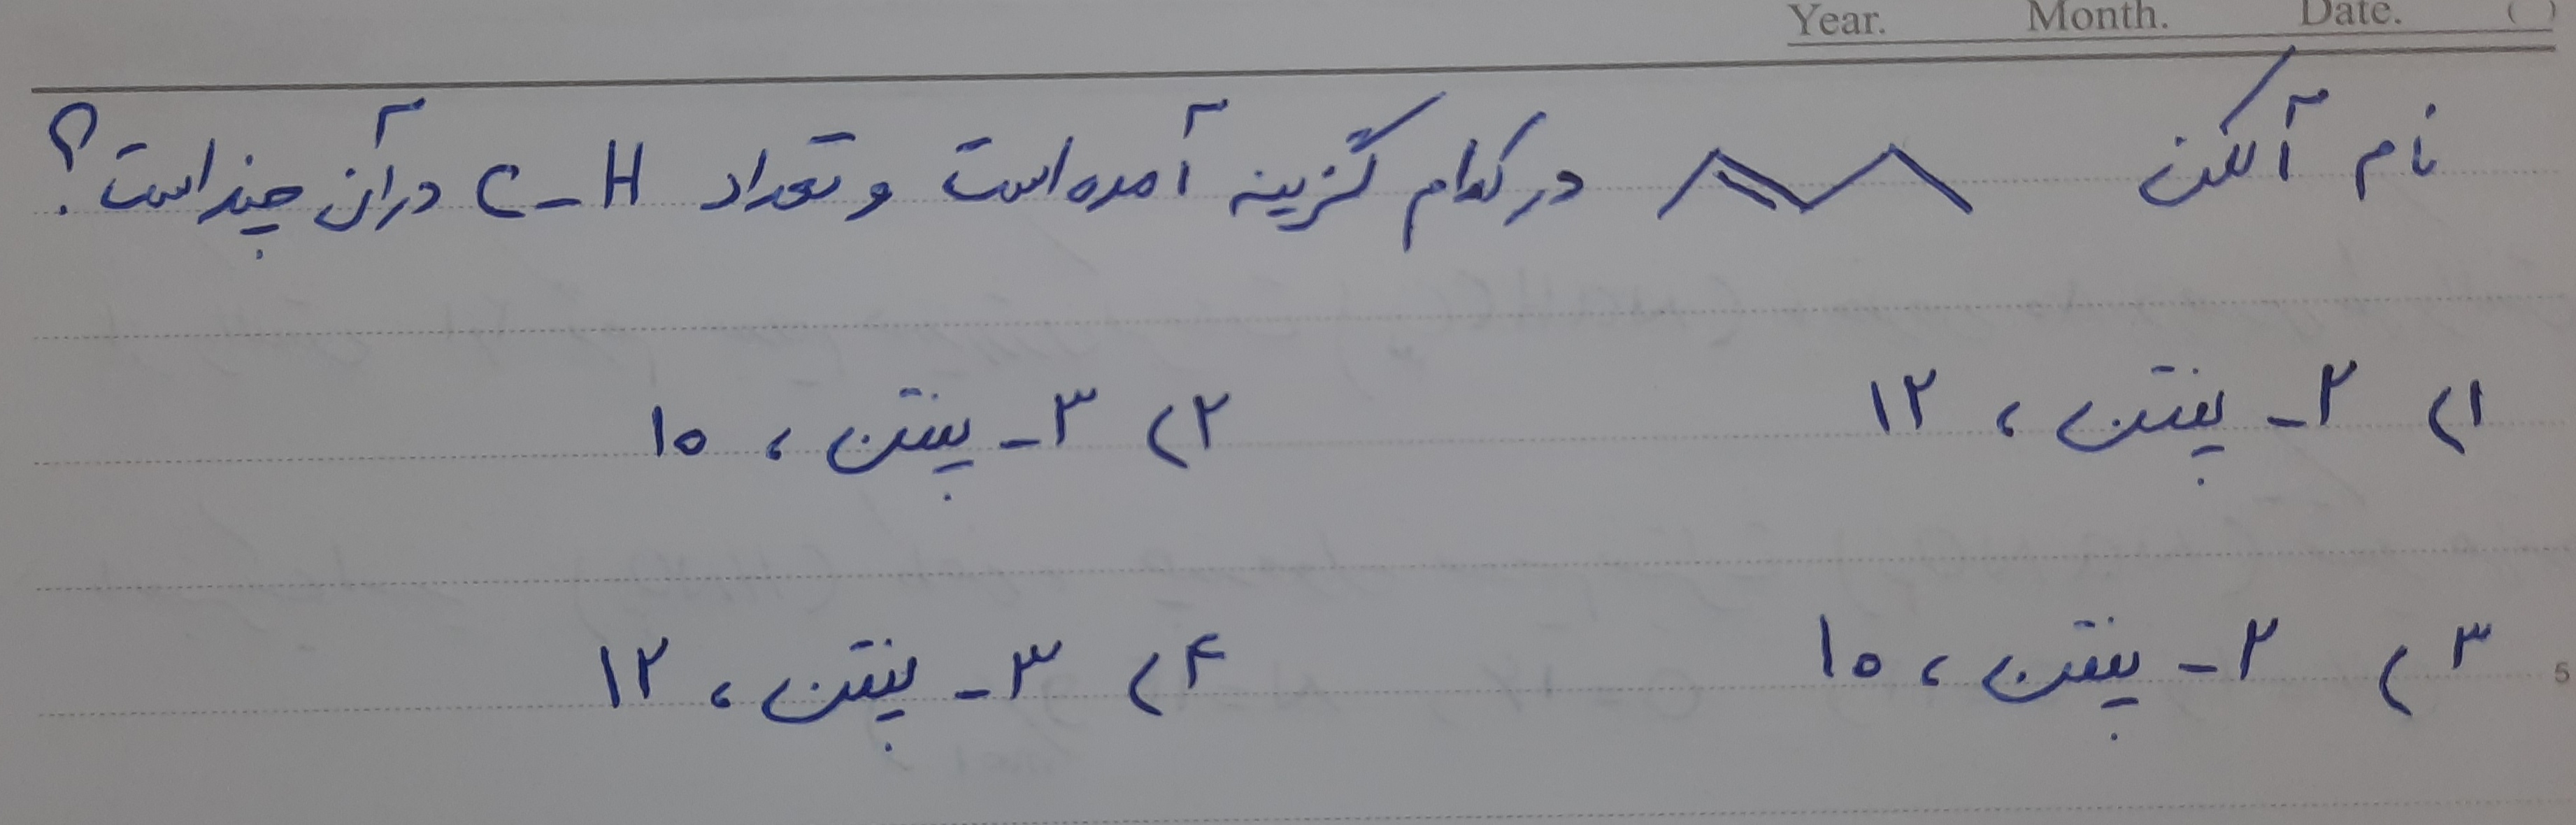 Year. Month. Date. ( )
نام آلکن در کدام گزینه آمده است و تعداد C-H در آن چند است؟
۱) ۲- پنتن، ۱۲ ۲) ۳- پنتن، ۱۰
۳) ۲- پنتن، ۱۰ ۴) ۳- پنتن، ۱۲
5